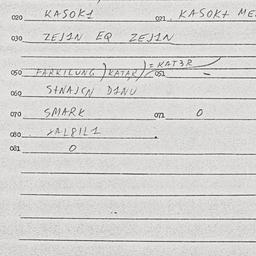 020 KASOK1 021 KASOK1 ME
030 ZEJ1N EQ ZEJ1N
050 PARKILUNG)KATAR)=KAT3R 051 -
060 S1NAJCN D1NU
070 SMARK 071 0
080 XALPIL1
081 0